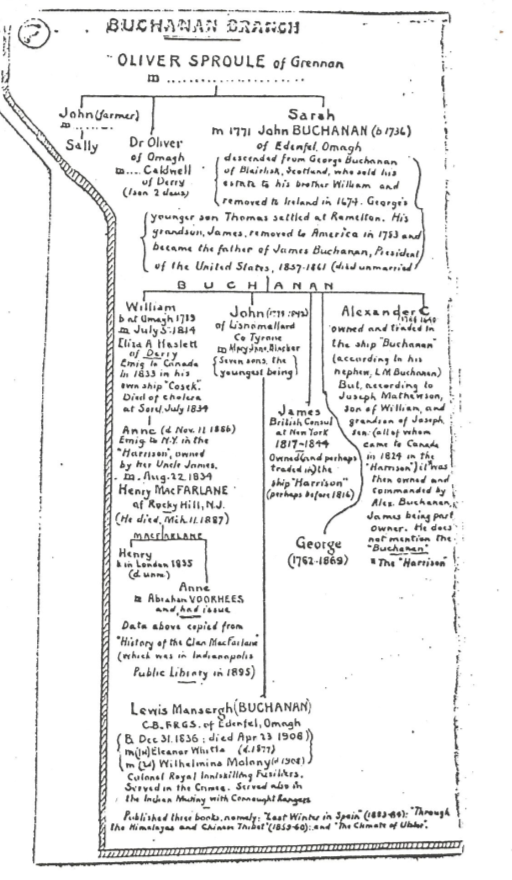 BUCHANAN BRANCH
OLIVER SPROULE of Grennan
m ....................
John (farmer)
m ........
Sally
Dr Oliver
of Omagh
m .... Caldwell
of Derry
(1 son 2 daus)
Sarah
m 1771 John BUCHANAN (b 1736)
of Edenfel, Omagh
descended from George Buchanan
of Blairlush, Scotland, who sold his
estate to his brother William and
removed to Ireland in 1674. George's
younger son Thomas settled at Ramelton. His
grandson, James, removed to America in 1783 and
became the father of James Buchanan, President
of the United States, 1857-1861 (died unmarried
BUCHANAN
William
b at Omagh
m July 5. 1814
Eliza A Haslett
of Derry
Emig to Canada
in 1833 in his
own ship "Cosek".
Died of cholera
at Sorel, July 1834
Anne (d Nov. 11 1886)
Emig to N.Y. in the
"Harrison", owned
by her Uncle James.
m. Aug. 22. 1834
Henry MacFARLANE
of Rocky Hill, N.J.
(He died, Mch. 11. 1887)
MACFARLANE
Henry
b in London 1835
(d unm)
Anne
m Abraham VOORHEES
and had issue
Data above copied from
"History of the Clan MacFarlane"
(which was in Indianapolis
Public Library in 1895)
John
of Lisnamallard
Co Tyrone
m Mary Jane Blacker
(Seven sons, the
youngest being)
James
British Consul
at New York
1817-1844
Owned (and perhaps
traded in) the
ship "Harrison"
(perhaps before 1816)
George
(1782-1869)
Alexander C
owned and traded in
the ship "Buchanan"
(according to his
nephew, L.M. Buchanan)
But, according to
Joseph Mathewson,
son of William, and
grandson of Joseph
sen: (all of whom
came to Canada
in 1824 in the
"Harrison") it was
then owned and
commanded by
Alex. Buchanan,
James being part
owner. He does
not mention the
"Buchanan"
* The "Harrison"
Lewis Mansergh (BUCHANAN)
C.B. F.R.G.S. of Edenfel, Omagh
(B. Dec 31. 1836 : died Apr 23 1908)
m (1st) Eleanor Whitla (d. 1877)
m (2d) Wilhelmina Molony (d 1908)
Colonel Royal Inniskilling Fusiliers.
Served in the Crimea. Served also in
the Indian Mutiny with Connaught Rangers
Published three books, namely: "Last Winter in Spain" "Through
the Himalayas and Chinese Thibet" (1859-60): and "The Climate of Ulster".